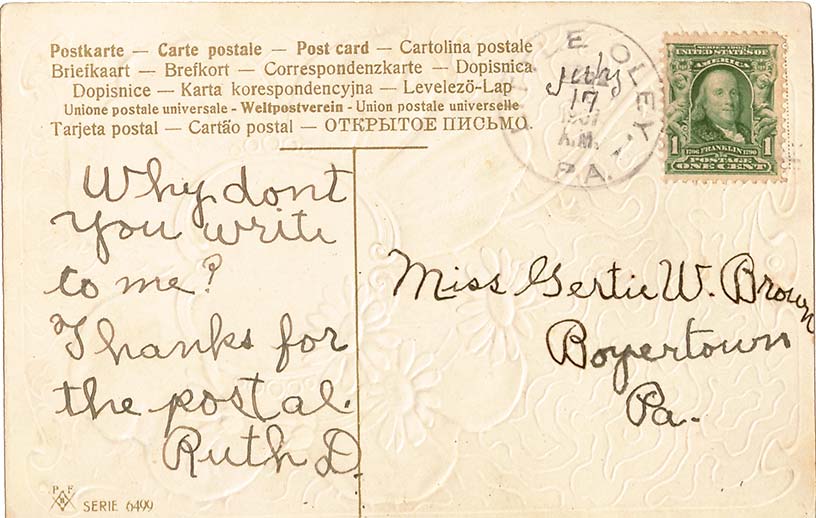 Postkarte — Carte postale — Post card — Cartolina postale
Briefkaart — Brefkort — Correspondenzkarte — Dopisnica
Dopisnice — Karta korespondencyjna — Levelező-Lap
Unione postale universale - Weltpostverein - Union postale universelle
Tarjeta postal — Cartão postal — ОТКРЫТОЕ ПИСЬМО.
OLEY
July
17
A.M.
PA.
SERIES 1902
UNITED STATES OF
AMERICA
1 1
1706 FRANKLIN 1790
POSTAGE
ONE CENT
Why dont
you write
to me?
Thanks for
the postal.
Ruth D.
Miss Gertie W. Brown
Boyertown
Pa.
P F
B
SERIE 6499